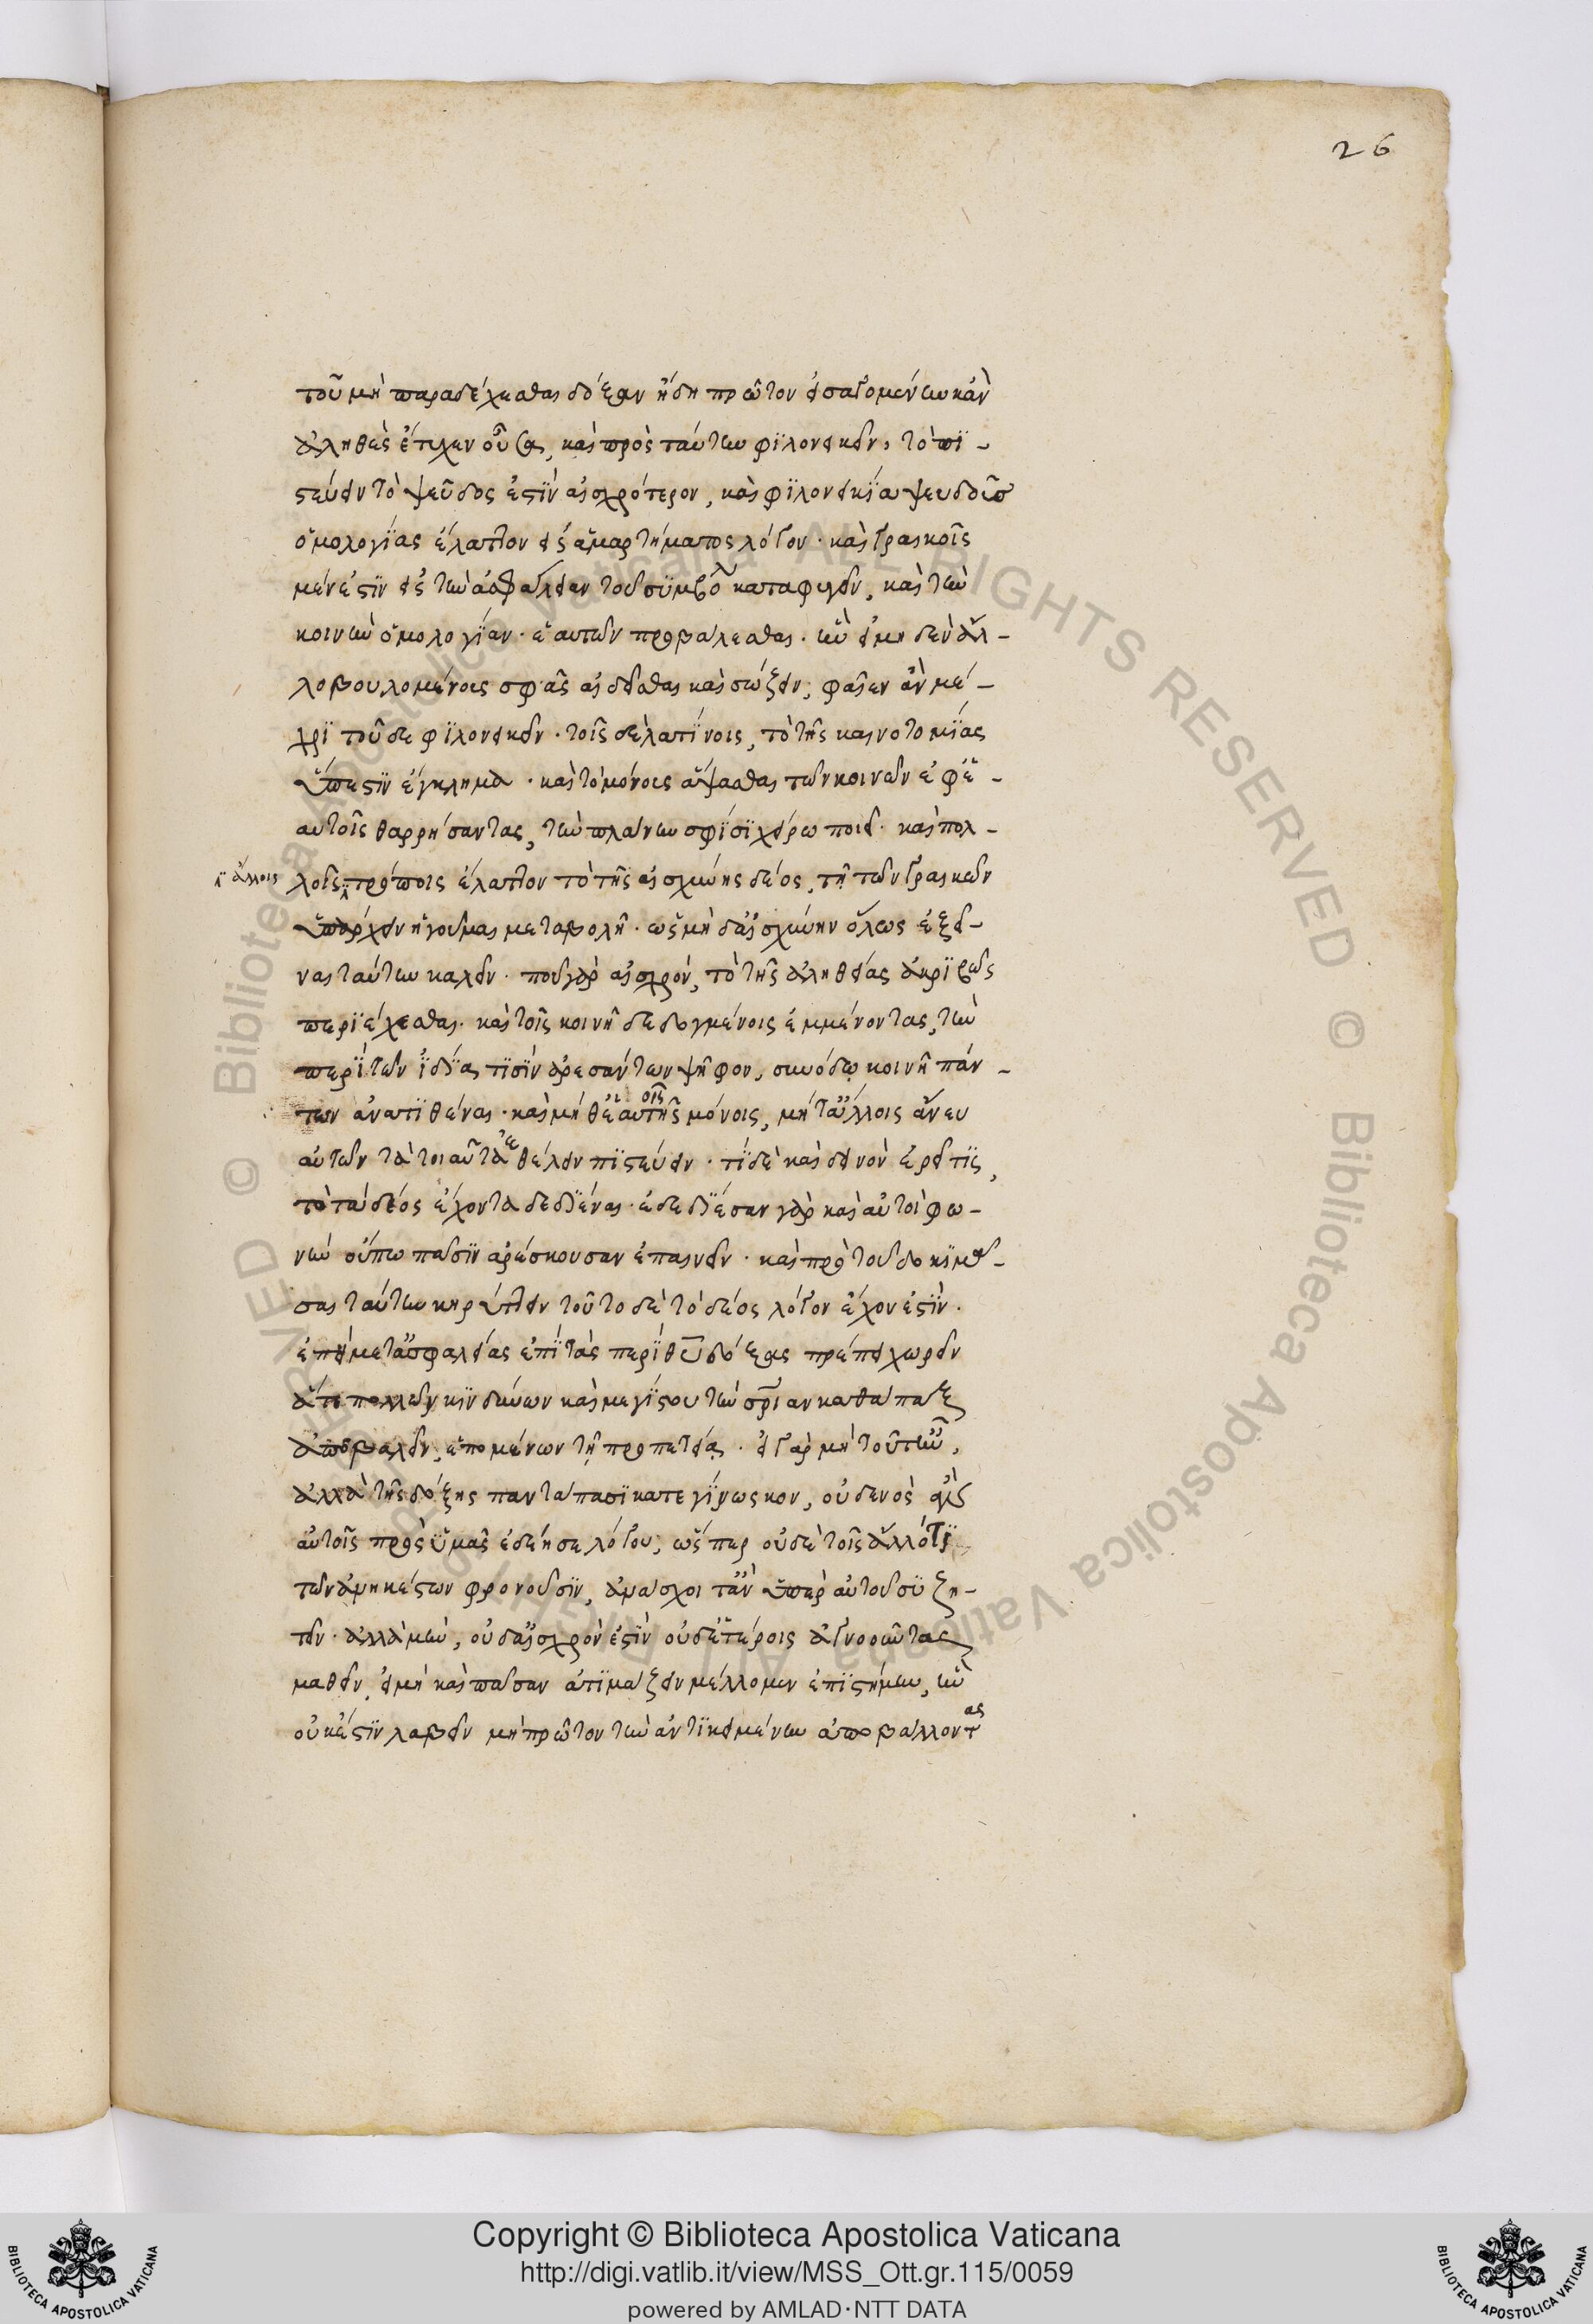 26
τοῦ μὴ παραδέχεσθαι δόξαν ἤδη πρῶτον εἰσαγομένην κἂν
ἀληθὲς ἔτυχεν οὖσα, καὶ πρὸς ταύτην φιλονεικεῖν, τὸ πι-
στεύειν τὸ ψεῦδος ἐστὶν αἰσχρότερον, καὶ φιλονεικία ψευδοῦσ
ὁμολογίας ἔλαττον εἰς ἁμαρτήματος λόγον. καὶ γραικοῖς
μέν ἐστιν εἰς τὴν ἀσφάλειαν τοῦ συμβόλ καταφυγεῖν, καὶ τὴν
κοινὴν ὁμολογίαν. ἑαυτῶν προβαλέσθαι. ἣν εἰ μηδὲν ἄλ-
λο βουλομένοις σφᾶς αἰδεῖσθαι καὶ σώζειν, φαῖεν ἂν μέ-
χρι τοῦδε φιλονεικεῖν. τοῖς δὲ λατίνοις, τὸ τῆς καινοτομίας
ὕπεστιν ἔγκλημα. καὶ τὸ μόνοις ἅψασθαι τῶν κοινῶν ἐφ' ἑ-
αυτοῖς θαρρήσαντας, τὴν πλάνην σφίσι χείρω ποιεῖ. καὶ πολ-
ἢ ἄλλοις
λοῖς τρόποις ἔλαττον τὸ τῆς αἰσχύνης δέος, τῇ τῶν γραικῶν
ὑπάρχειν ἡγοῦμαι μεταβολῇ. ὡς μὴ δ' αἰσχύνην ὅλως ἐξεῖ-
ναι ταύτην καλεῖν. ποῦ γὰρ αἰσχρόν, τὸ τῆς ἀληθείας ἀκριβῶς
περιέχεσθαι. καὶ τοῖς κοινῇ δεδογμένοις ἐμμένοντας, τὴν
περὶ τῶν ἰδίᾳ τισὶν ἀρεσάντων ψῆφον, συνόδῳ κοινῇ πάν-
των ἀνατιθέναι. καὶ μήθ' ἑαυτοῖς μόνοις, μήτ' ἄλλοις ἄνευ
αὐτῶν τὰ τοιαῦτα ἐθέλειν πιστεύειν. τί δὲ καὶ δεινὸν ἐρεῖ τις,
τοῦτο δέος ἔχοντα δεδιέναι. ἐδεδίεσαν γὰρ καὶ αὐτοὶ φω-
νὴν οὔπω πᾶσιν ἀρέσκουσαν ἐπαινεῖν. καὶ πρὸ τοῦ δοκιμά-
σαι ταύτην κηρύττειν τοῦτο δὲ τὸ δέος λόγον ἔχον ἐστίν.
ἐπεὶ μετ' ἀσφαλείας ἐπὶ τὰς περὶ θῦ δόξας πρέπει χωρεῖν
ἅτε πολλῶν κινδύνων καὶ μεγίστου τὴν σρίαν καθάπαξ
ἀποβαλεῖν, ἑπομένων τῇ προπετείᾳ. εἰ γὰρ μὴ τοῦτ' ἦν,
ἀλλὰ τῆς δόξης παντάπασι κατεγίνωσκον, οὐδενὸς ἂν
αὐτοῖς πρὸς ὑμᾶς ἐδέησε λόγου, ὥσπερ οὐδὲ τοῖς ἄλλό τι
τῶν ἀνηκέστων φρονοῦσιν, ἀμάσχοιτ' ἂν ὑπὲρ αὐτοῦ συζη-
τεῖν. ἀλλὰ μὴν, οὐδ' αἰσχρόν ἐστιν οὐδετέροις ἀγνοοῦντας
μαθεῖν, εἰ μὴ καὶ πᾶσαν ἀτιμάζειν μέλλομεν ἐπιστήμην, ἣν
οὐκ ἔστιν λαβεῖν μὴ πρῶτον τὴν ἀντικειμένην ἀποβάλλοντας
Copyright © Biblioteca Apostolica Vaticana
http://digi.vatlib.it/view/MSS_Ott.gr.115/0059
powered by AMLAD·NTT DATA